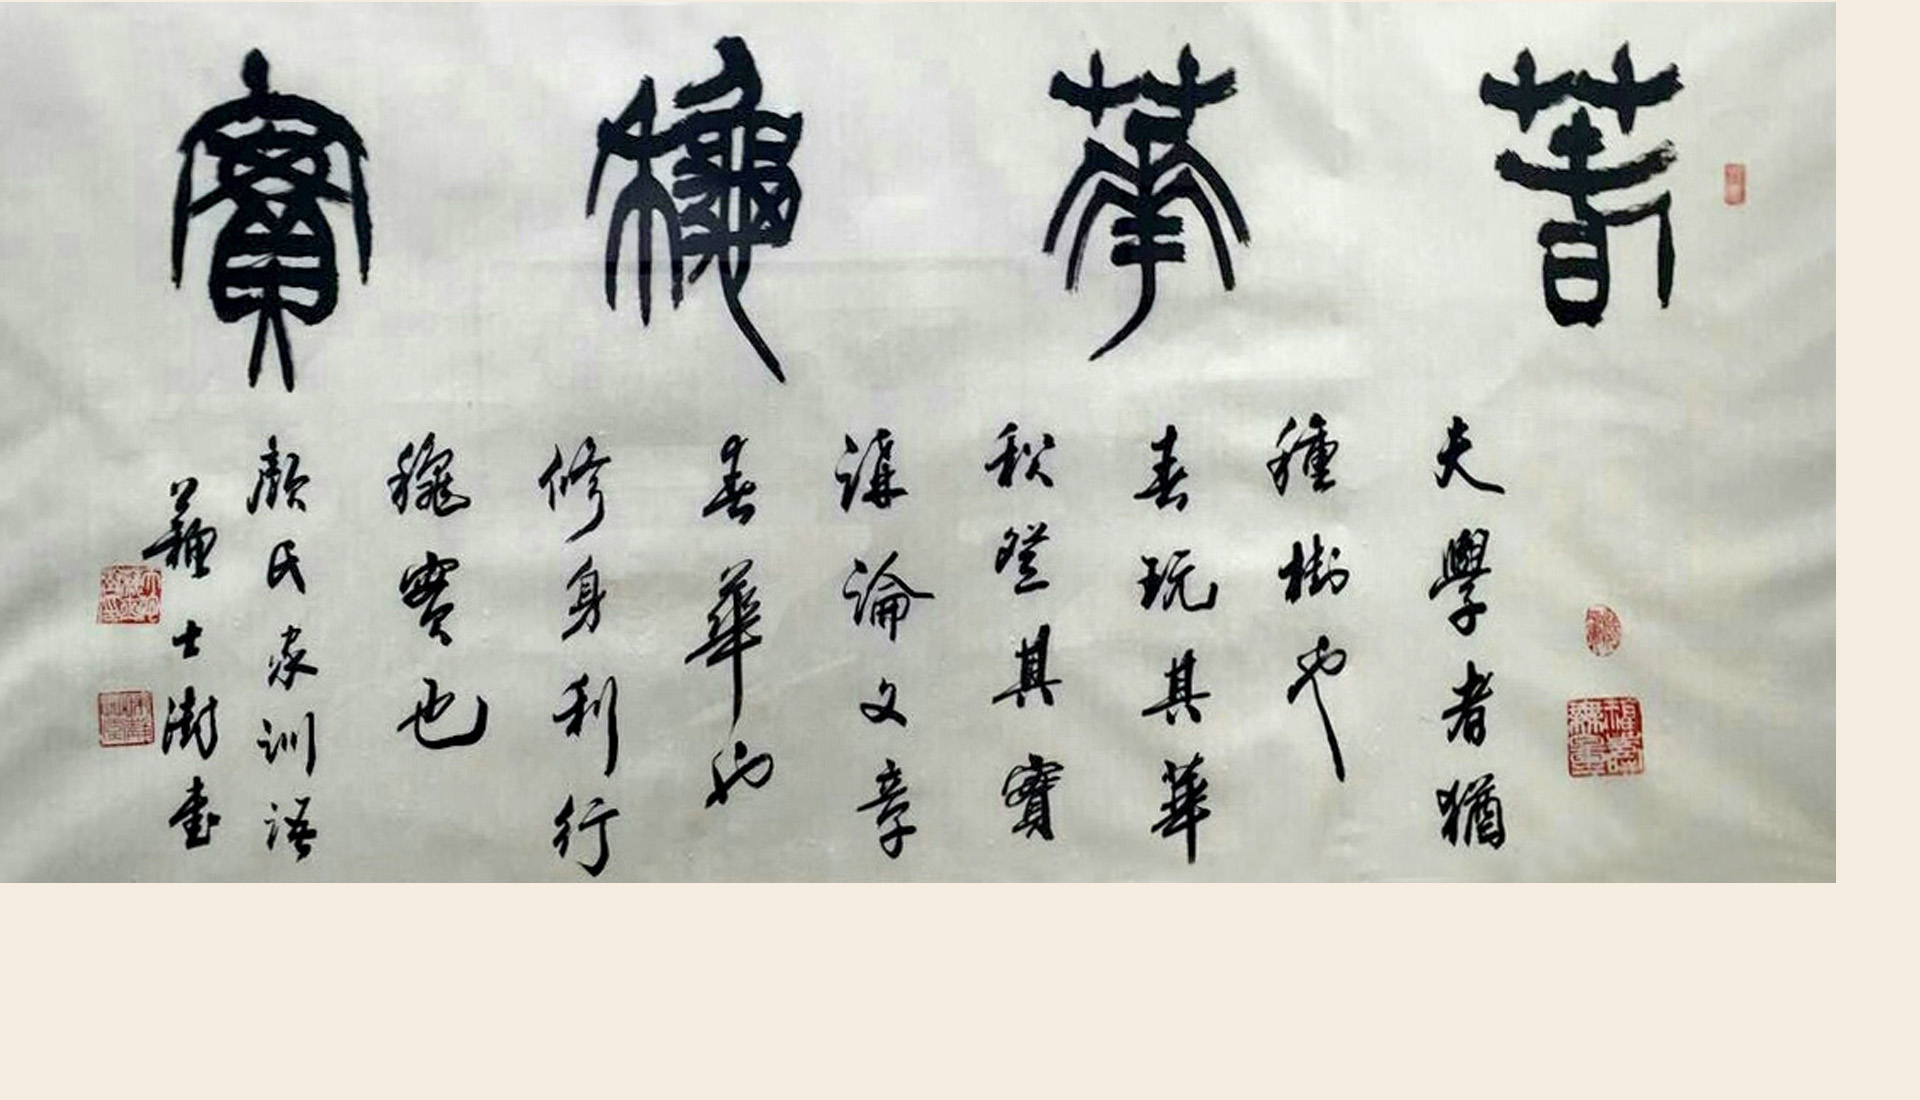 萅華龝實
夫學者猶
種樹也
春玩其華
秋登其實
講論文章
春華也
修身利行
穐實也
顏氏家訓語
蘇士澍書